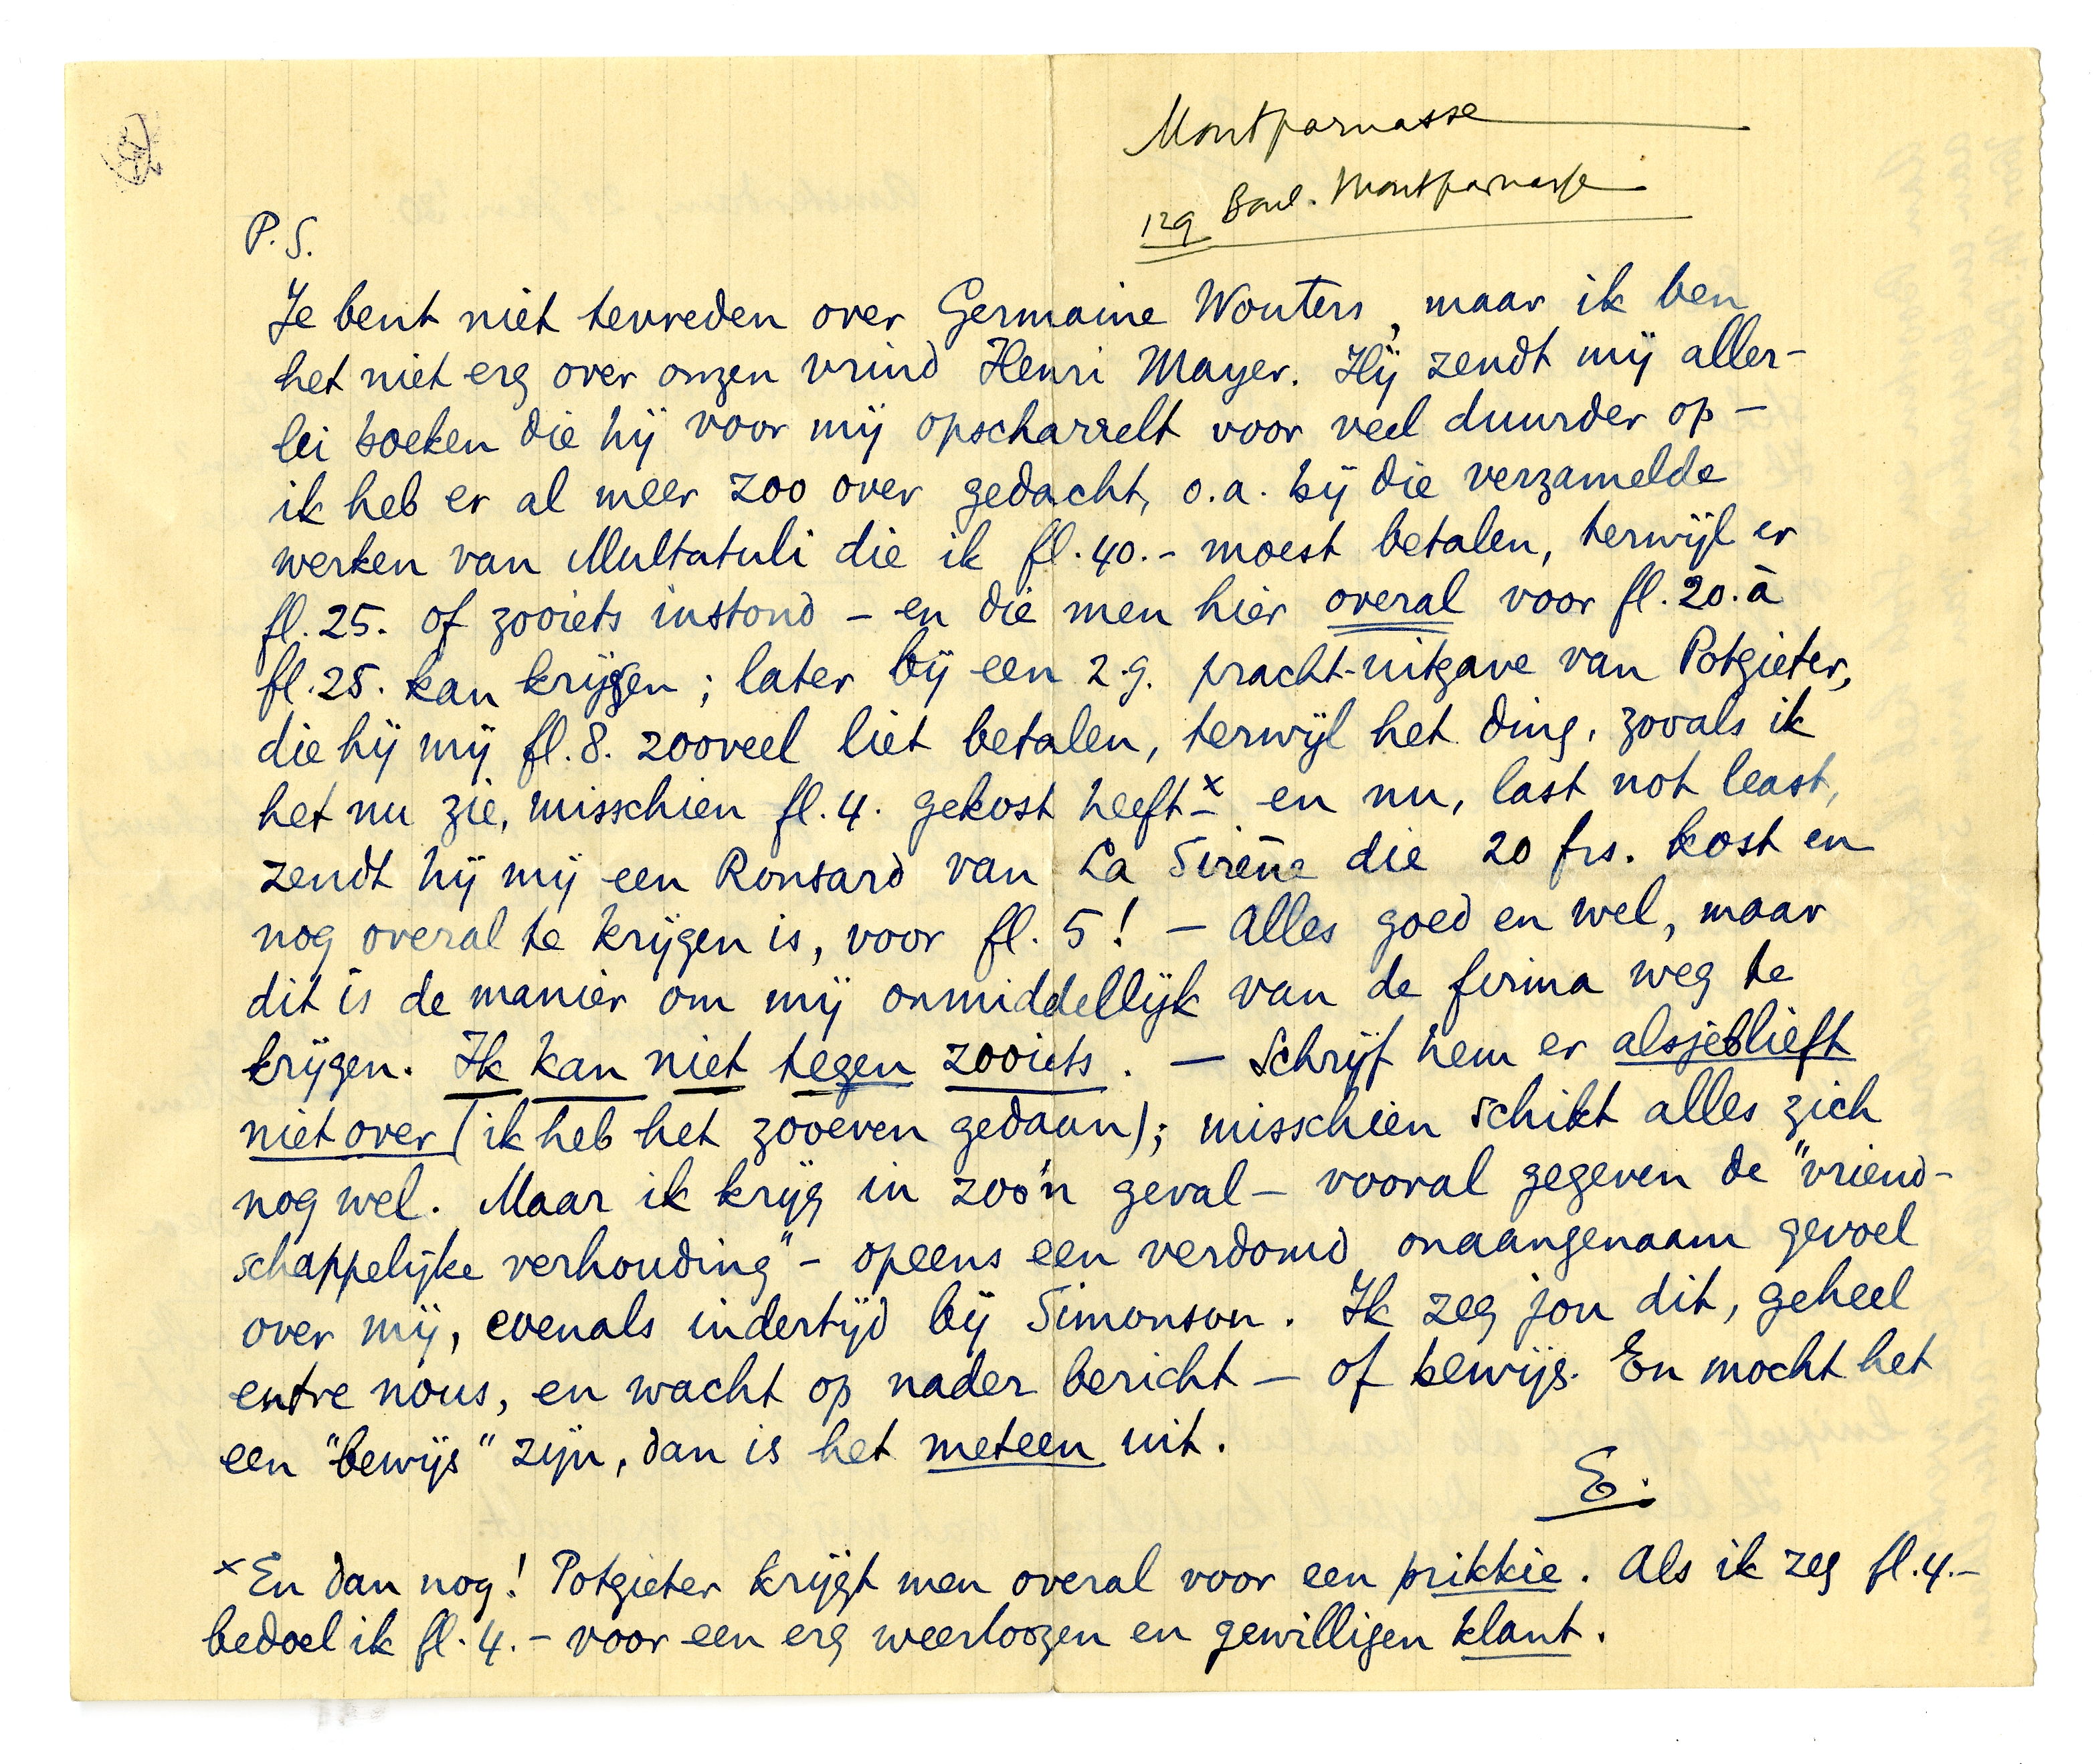 Montparnasse
129 Boul. Montparnasse
P.S.
Je bent niet tevreden over Germaine Wouters, maar ik ben
het niet erg over onzen vrind Henri Mayer. Hij zendt mij aller-
lei boeken die hij voor mij opscharrelt voor veel duurder op –
ik heb er al meer zoo over gedacht, o.a. bij die verzamelde
werken van Multatuli die ik fl. 40.- moest betalen, terwijl er
fl. 25. of zooiets instond – en die men hier overal voor fl. 20. à
fl. 25. kan krijgen; later bij een z.g. pracht-uitgave van Potgieter,
die hij mij fl. 8. zooveel liet betalen, terwijl het ding, zooals ik
het nu zie, misschien fl. 4. gekost heeft x – en nu, last not least,
zendt hij mij een Ronsard van La Sirène die 20 frs. kost en
nog overal te krijgen is, voor fl. 5! – Alles goed en wel, maar
dit is de manier om mij onmiddellijk van de firma weg te
krijgen. Ik kan niet tegen zooiets. – Schrijf hem er alsjeblieft
niet over (ik heb het zooeven gedaan); misschien schikt alles zich
nog wel. Maar ik krijg in zoo'n geval – vooral gegeven de "vriend-
schappelijke verhouding" – opeens een verdomd onaangenaam gevoel
over mij, evenals indertijd bij Simonson. Ik zeg jou dit, geheel
entre nous, en wacht op nader bericht – of bewijs. En mocht het
een "bewijs" zijn, dan is het meteen uit.
E.
x En dan nog! Potgieter krijgt men overal voor een prikkie. Als ik zeg fl. 4.-
bedoel ik fl. 4.- voor een erg weerloozen en gewilligen klant.